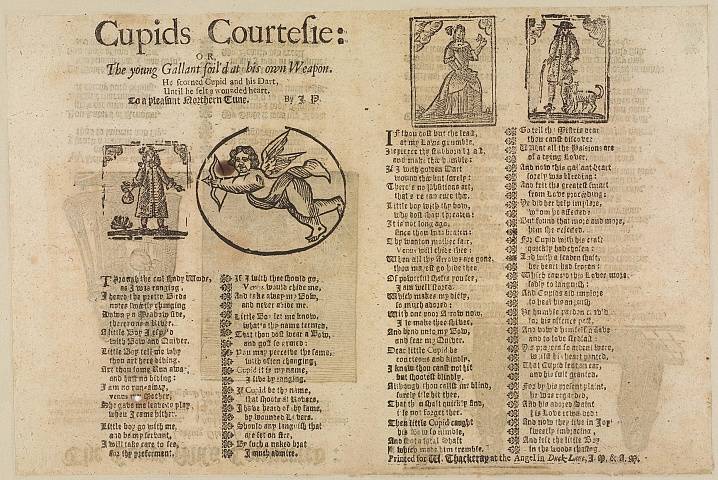 Cupids Courtesie:
OR,
The young Gallant foil'd at his own Weapon.
He scorned Cupid and his Dart,
Until he felt a wounded heart.
To a pleasant Northern Tune. By J. P.
Through the cool shady Woods,
as I was ranging,
I heard the pretty Birds
notes sweetly changing
Down by a Meadow side,
there runs a River,
A little Boy I espy'd
with Bow and Quiver.
Little Boy tell me why
thou art here diving,
Art thou some Run away,
and hast no biding:
I am no run away,
Venus my Mother,
She gave me leave to play
when I came hither.
Little boy go with me,
and be my servant,
I will take care to see,
for thy preferment,
If I with thee should go,
Venus would chide me,
And take away my Bow,
and never abide me.
Little Boy let me know,
what's thy name termed,
That thou dost wear a Bow,
and go'st so armed:
You may perceive the same,
with often changing,
Cupid it is my name,
I live by ranging.
If Cupid be thy name,
that shoots at Rovers,
I have heard of thy fame,
by wounded Lovers.
Should any languish that
are set on fire,
By such a naked brat
I much admire.
If thou dost but the least,
at my Laws grumble,
I'le pierce thy stubborn heart,
and make thee humble:
If I with golden Dart
wound thee but surely:
There's no Physitians art,
that e're can cure thee.
Little boy with thy bow,
why dost thou threaten:
It is not long ago,
since thou was beaten:
Thy wanton mother fair,
Venus will chide thee:
When all thy Arrows are gone,
thou mayst go hide thee.
Of powerful shafts you see,
I am well stored:
Which makes my deity,
so much adored:
With one poor Arrow now,
I le make thee shiver,
And bend unto my Bow,
and fear my Quiver.
Dear little Cupid be
courteous and kindly,
I know thou canst not hit
but shootest blindly.
Although thou callst me blind,
surely I le hit thee,
That thou shalt quickly find,
I le not forget thee.
Then little Cupid caught
his Bow so nimble,
And shot a fatal Shaft
which made him tremble.
Go tell thy Mistris dear
thou canst discover,
What all the Passions are
of a dying Lover.
And now this gallant heart
sorely was bleeding:
And felt the greatest smart
from Love proceeding:
He did her help implore,
whom he affected:
But found that more and more,
him she rejected.
For Cupid with his craft
quickly had chosen:
And with a leaden shaft,
her heart had frozen:
Which caused this Lover more
sadly to languish:
And Cupids aid implore
to heal his anguish.
He humble pardon crav'd
for his offence past,
And vow'd himself a slave
and to love stedfast:
His prayers so ardent were,
whilst his heart panted,
That Cupid lent an ear,
and his suit granted.
For by his present plaint,
he was regarded,
And his adored Saint
his Love rewarded:
And now they live in Joy
sweetly imbracing,
And left the little Boy
in the Woods chasing.
Printed for W. Thackeray at the Angel in Duck-Lane, J. M. & A. M.